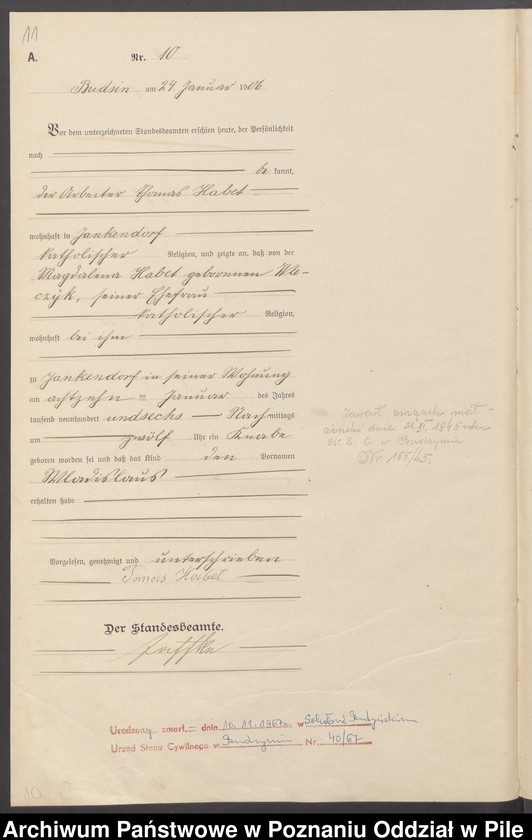 11
A.
Nr. 10
Budsin am 24 Januar 1906
Vor dem unterzeichneten Standesbeamten erschien heute, der Persönlichkeit
nach
be kannt,
der Arbeiter Thomas Habet
wohnhaft in Jankendorf
katholischer Religion, und zeigte an, daß von der
Magdalena Habet geborenen
czyk, seiner Ehefrau
katholischer Religion,
wohnhaft bei ihm
zu Jankendorf in seiner Wohnung
am achtzehn ten Januar des Jahres
tausend neunhundert undsechs Nach mittags
um zwölf Uhr ein Knabe
geboren worden sei und daß das Kind den Vornamen
Wladislaus
erhalten habe
Vorgelesen, genehmigt und unterschrieben
Tomas Habet
Der Standesbeamte.
Zawarł związek mał-
żeński dnia 21. XI. 1945
U. S. C. w Budzyniu
Nr 165/45.
Urodzony zmarł dnia 10. 11. 1967r. w
Urząd Stanu Cywilnego w Budzyniu Nr. 40/67
10
Archiwum Państwowe w Poznaniu Oddział w Pile